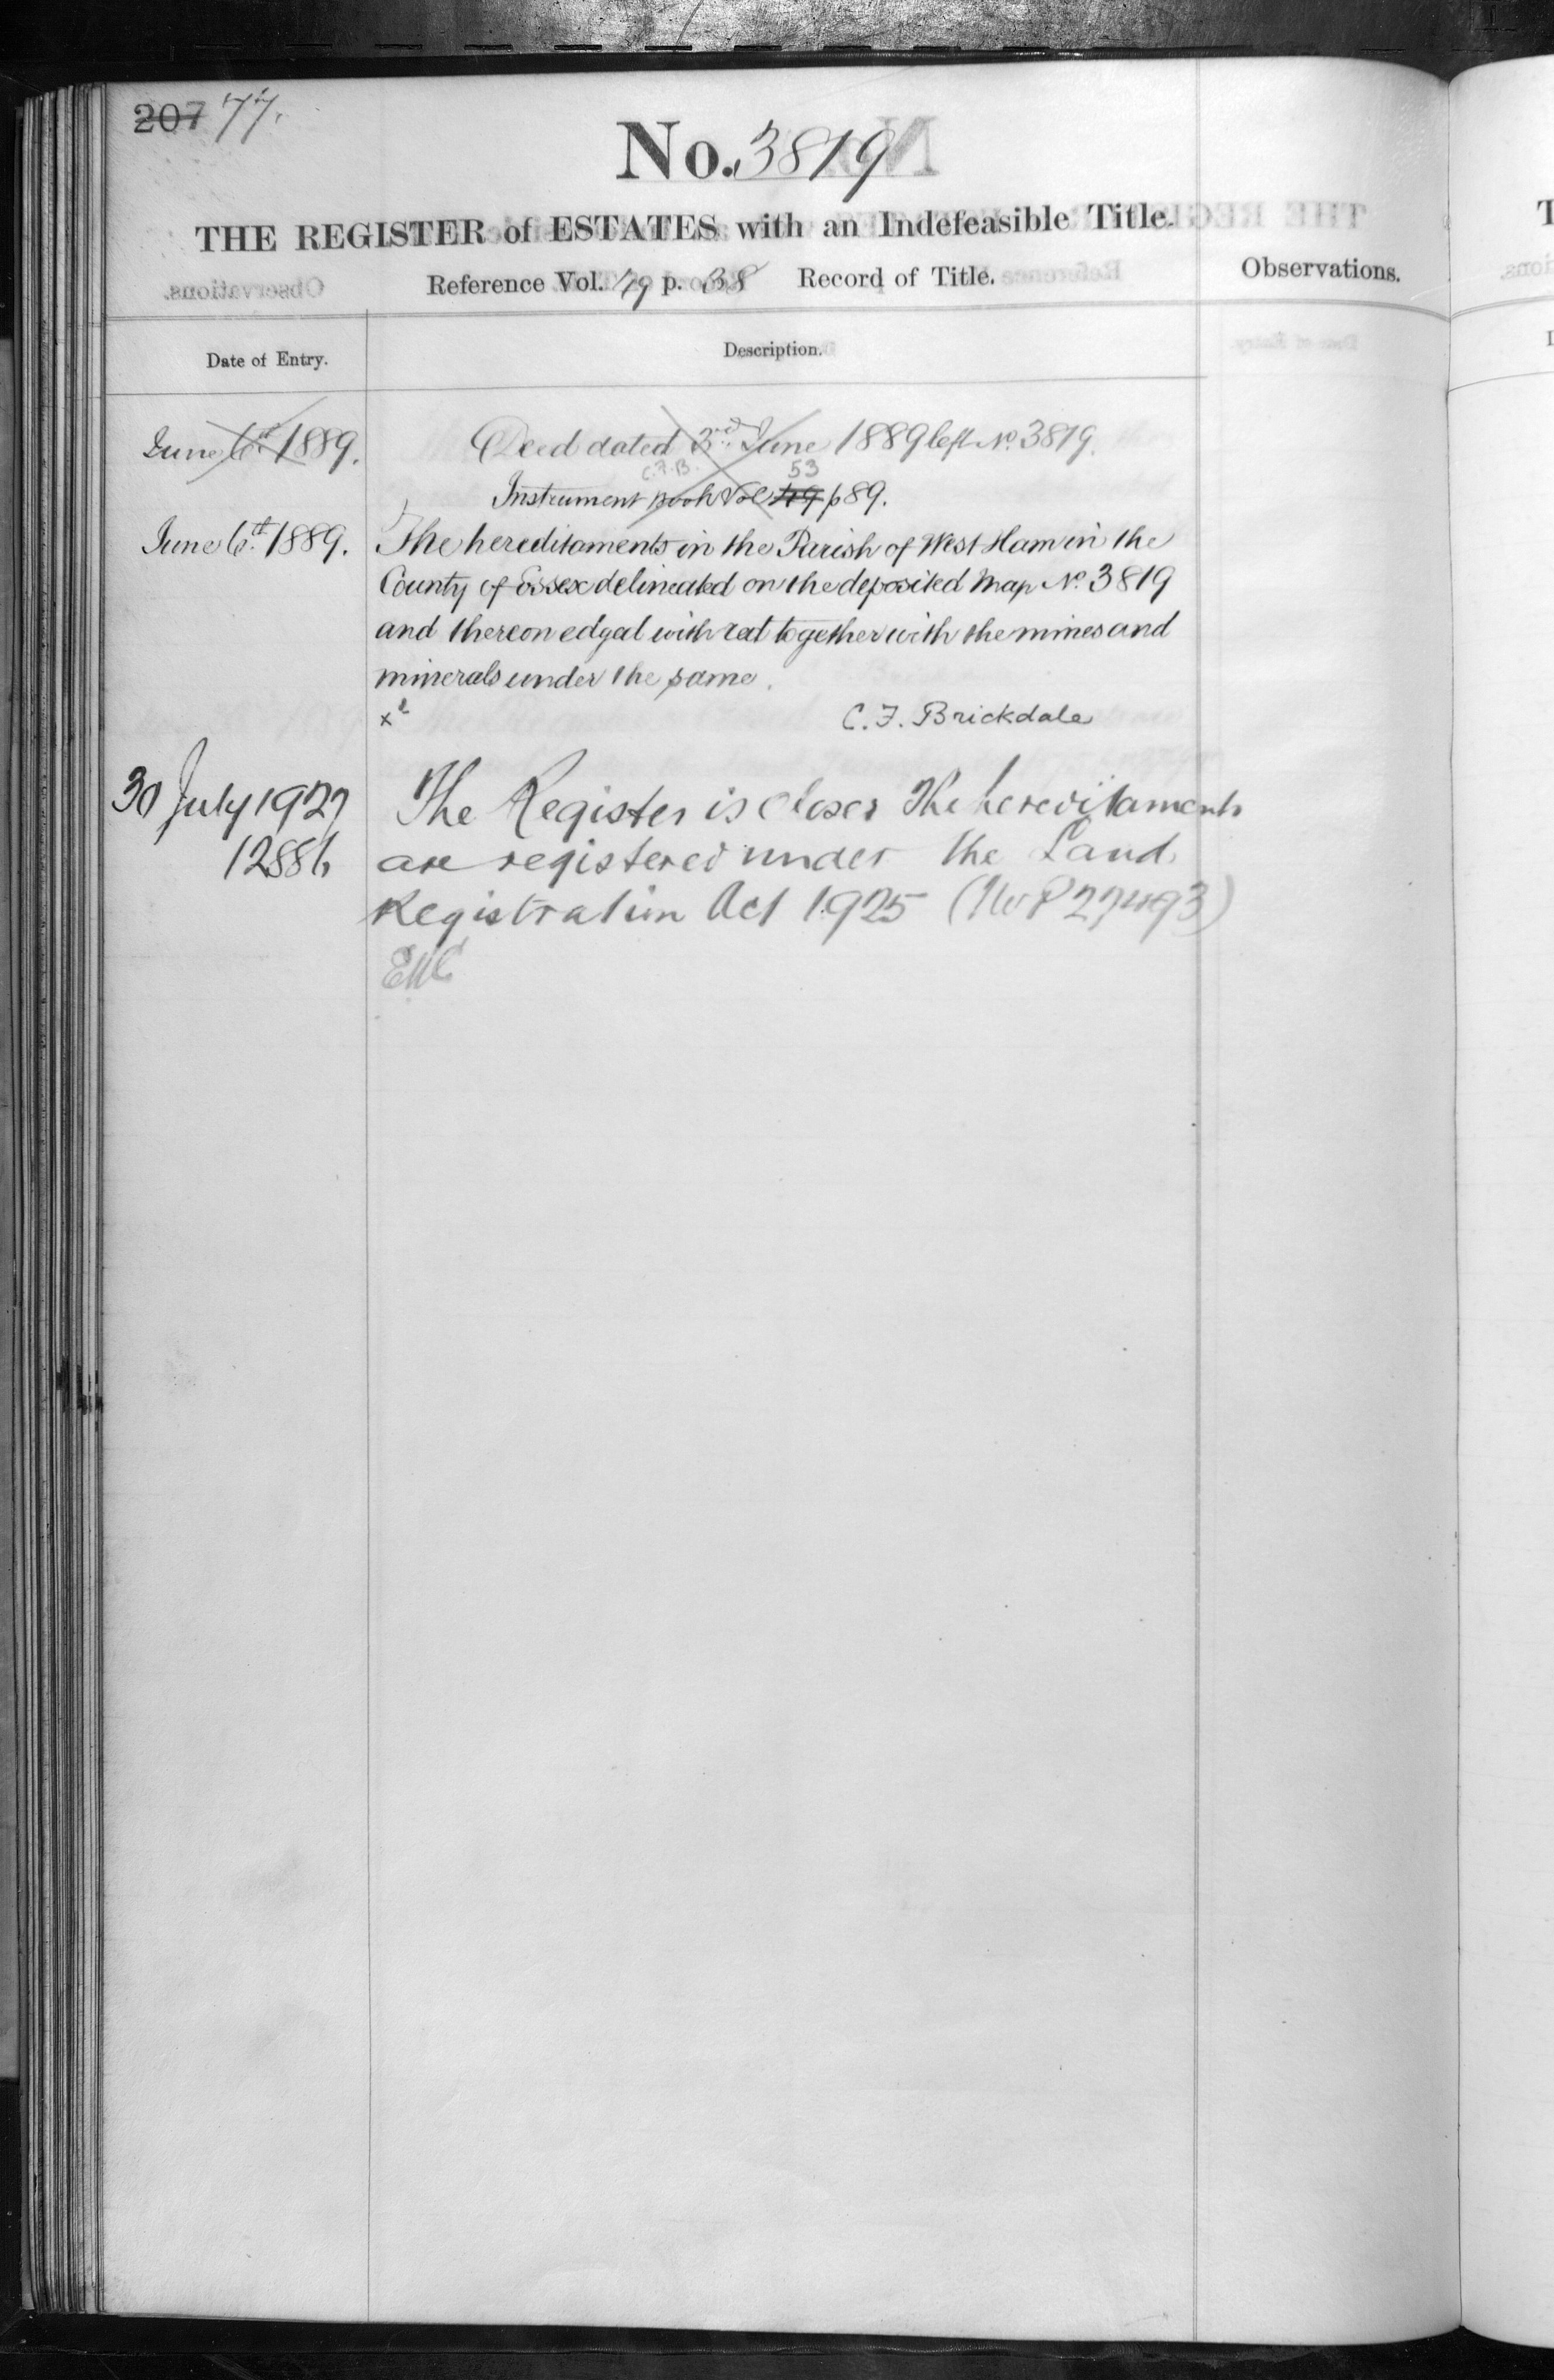 207 77.
No. 3819
THE REGISTER of ESTATES with an Indefeasible Title.
Reference Vol. 49 p. 38 Record of Title.
Observations.
Date of Entry.
Description.
June 6th 1889.
Deed dated 3rd June 1889 left No 3819.
C.F.B. 53
Instrument book Vol 49 p 89.
June 6th 1889.
The hereditaments in the Parish of West Ham in the
County of Essex delineated on the deposited Map No 3819
and thereon edged with red together with the mines and
minerals under the same.
C. F. Brickdale
30 July 1927
12886
The Register is closed The hereditaments
are registered under the Land
Registration Act 1925 (No P 27493)